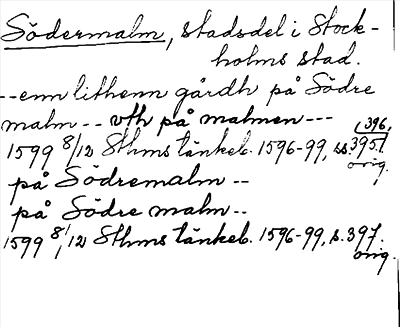 Södermalm, stadsdel i Stock-
holms stad.
--enn lithenn gårdh på Södre
malm -- vth på malmen ---
1599 8/12 Sthms tänkeb. 1596-99, ss. 395, (396,
orig.
på Södremalm --
på Södre malm --
1599 8/12 Sthms tänkeb. 1596-99, s. 397.
orig.